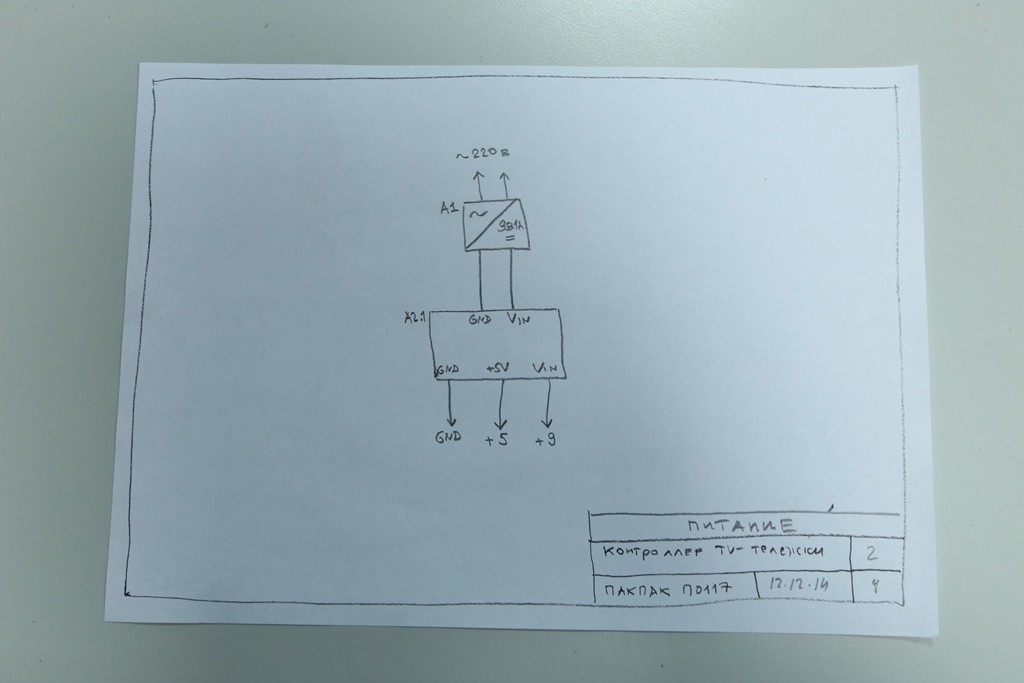 ~220 В
А1 ~ 9В1А =
А2.1 GND VIN
GND +5V VIN
GND +5 +9
ПИТАНИЕ
КОНТРОЛЛЕР TV-ТЕЛЕЖКИ 2
ПАКПАК П0117 12.12.14 4